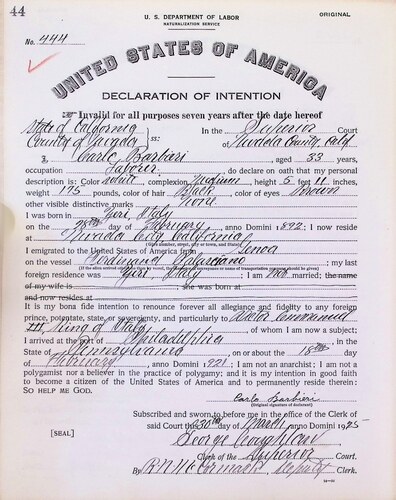 44
U. S. DEPARTMENT OF LABOR
NATURALIZATION SERVICE
ORIGINAL
No. 444
UNITED STATES OF AMERICA
DECLARATION OF INTENTION
Invalid for all purposes seven years after the date hereof
State of California
In the Superior Court
County of Nevada
ss:
of Nevada County, Calif
I, Carlo Barbieri, aged 33 years,
occupation Laborer, do declare on oath that my personal
description is: Color white, complexion Medium, height 5 feet 11 inches,
weight 175 pounds, color of hair Black, color of eyes Brown
other visible distinctive marks None
I was born in Italy
on the 28th day of February, anno Domini 1892; I now reside
at Nevada City California
(Give number, street, city or town, and State)
I emigrated to the United States of America from Genoa
on the vessel Ferdinand; my last
foreign residence was Italy; I am not married; the name
of my wife is; she was born at
and now resides at
It is my bona fide intention to renounce forever all allegiance and fidelity to any foreign
prince, potentate, state, or sovereignty, and particularly to Victor Emmanuel
III, King of Italy, of whom I am now a subject;
I arrived at the port of Philadelphia, in the
State of Pennsylvania, on or about the 18th day
of February, anno Domini 1921; I am not an anarchist; I am not a
polygamist nor a believer in the practice of polygamy; and it is my intention in good faith
to become a citizen of the United States of America and to permanently reside therein:
SO HELP ME GOD.
Carlo Barbieri
(Original signature of declarant)
Subscribed and sworn to before me in the office of the Clerk of
[SEAL]
said Court this 30th day of March, anno Domini 1925
George
Clerk of the Superior Court.
By R. N. McCormack, Deputy Clerk.